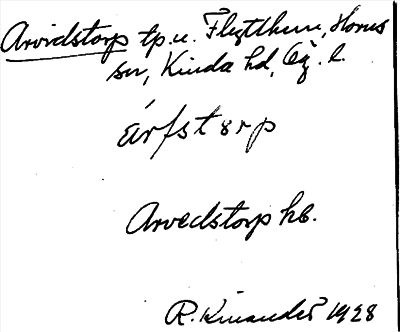 Arvidstorp tp.u. Flytthem, Horns
sn, Kinda hd, Ög. l.
árfstorp
Arvedstorp hb.
R. Kinander 1928